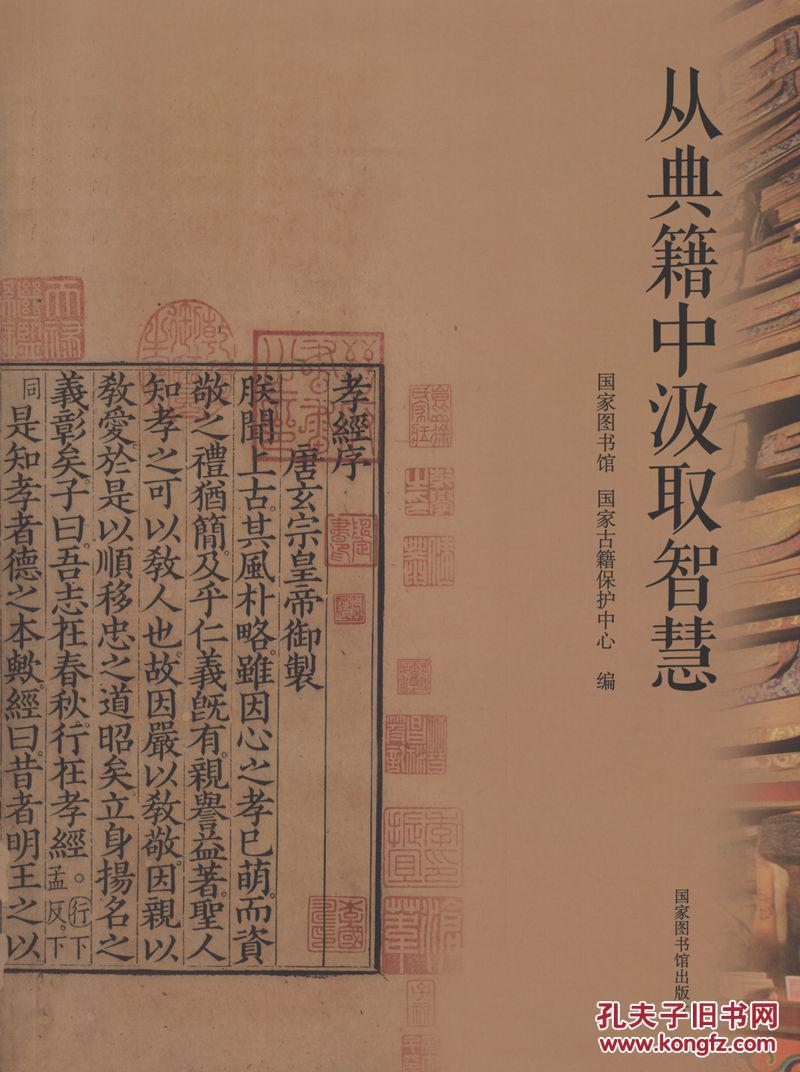 从典籍中汲取智慧
国家图书馆 国家古籍保护中心 编
国家图书馆出版
孝經序
唐玄宗皇帝御製
朕聞上古其風朴略雖因心之孝已萌而資
敬之禮猶簡及乎仁義旣有親譽益著聖人
知孝之可以敎人也故因嚴以敎敬因親以
敎愛於是以順移忠之道昭矣立身揚名之
義彰矣子曰吾志在春秋行在孝經。孟反。行下下
同是知孝者德之本歟經曰昔者明王之以
孔夫子旧书网
www.kongfz.com